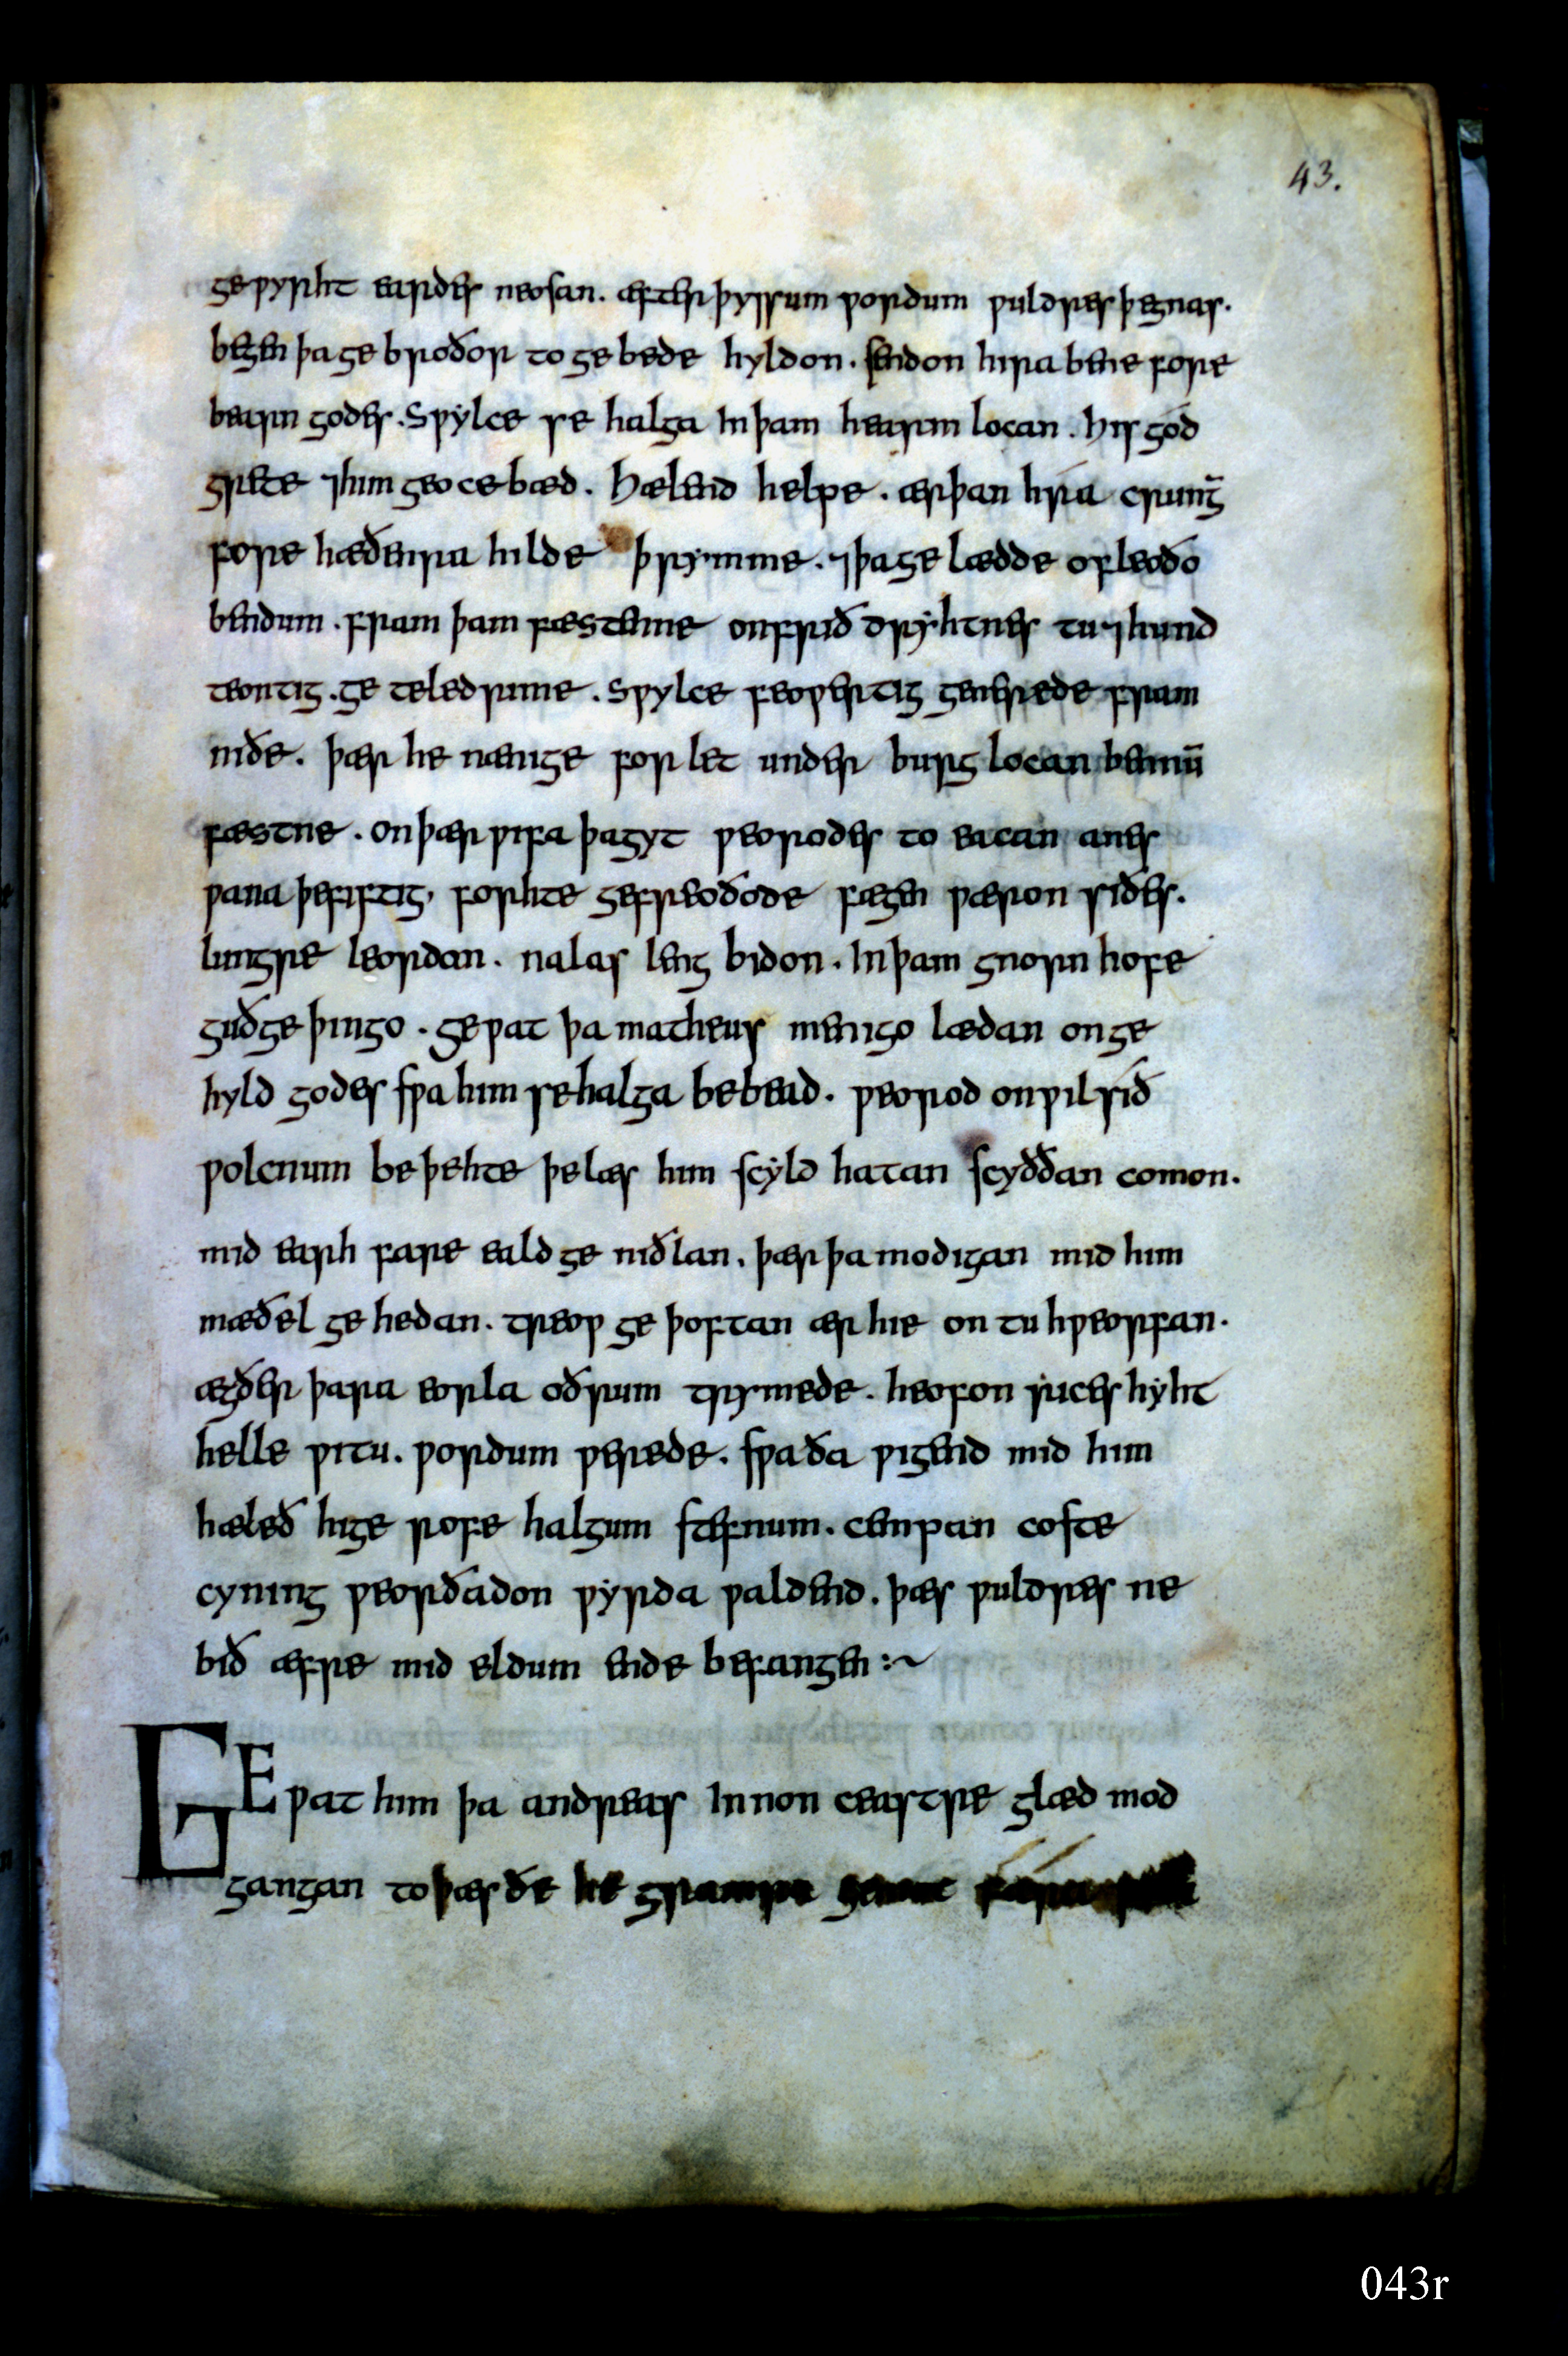 43.
geƿyrht eardes neosan. æfter þyssum ƿordum ƿuldres þegnas.
begen þa ge broðor to ge bede hyldon. sendon hira bene fore
bearn godes. Sƿylce se halga in þam hearm locan. his gód
grete ⁊ him geoce bæd. hælend helpe. ær þan hrá crung̅
fore hæðenra hilde þrymme. ⁊ þa ge lædde of leoðo
bendum. fram þam fæstenne on frið dryhtnes tu ⁊ hund
teontig. ge teled rime. sƿylce feoƿertig generede fram
niðe. þær he nænige for let under burg locan bennū
fæstne. on þær ƿifa þa gyt ƿeorodes to eacan anes
ƿana þe fiftig, forhte gefreoðode fægen ƿæron siðes.
lungre leordan. nalas leng bidon. In þam gnorn hofe
guð ge þingo. geƿat þa matheus menigo lædan on ge
hyld godes sƿa him se halga bebead. ƿeorod on ƿil síð
ƿolcnum be þehte þe læs him scyld hatan scyððan comon.
mid earh fare eald ge niðlan. þær þa modigan mid him
mæðel ge hedan. treoƿ ge þoftan ær hie on tu hƿeorfan.
ægðer þara eorla oðrum trymede. heofon rices hyht
helle ƿitu. ƿordum ƿerede. sƿa ða ƿigend mid him
hæleð hige rofe halgum stefnum. cempan coste
cyning ƿeorðadon ƿyrda ƿaldend. þæs ƿuldres ne
bið æfre mid eldum ende befangen :~
GEƿat him þa andreas Inn on ceastre glæd mod
gangan to þæs ðe he gramra gemot
043r